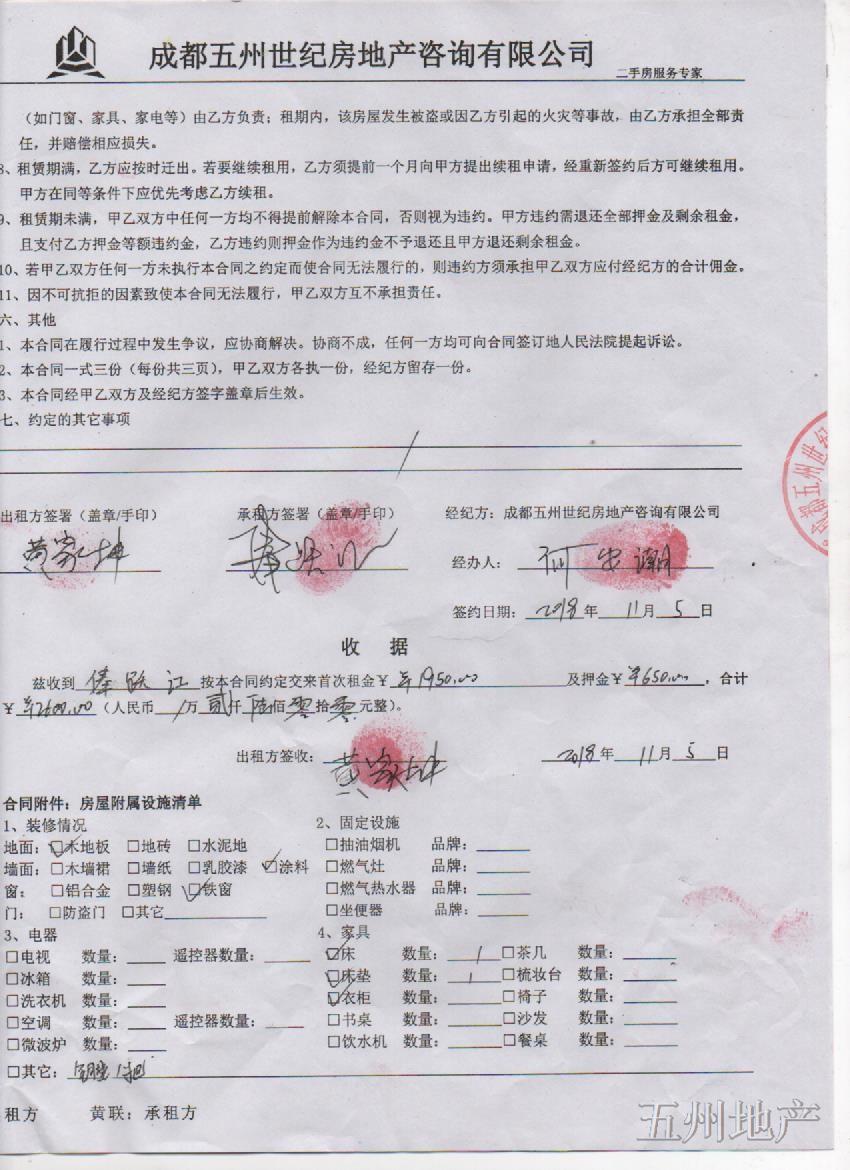 成都五州世纪房地产咨询有限公司
二手房服务专家
（如门窗、家具、家电等）由乙方负责；租期内，该房屋发生被盗或因乙方引起的火灾等事故，由乙方承担全部责
任，并赔偿相应损失。
8、租赁期满，乙方应按时迁出。若要继续租用，乙方须提前一个月向甲方提出续租申请，经重新签约后方可继续租用。
甲方在同等条件下应优先考虑乙方续租。
9、租赁期未满，甲乙双方中任何一方均不得提前解除本合同，否则视为违约。甲方违约需退还全部押金及剩余租金，
且支付乙方押金等额违约金，乙方违约则押金作为违约金不予退还且甲方退还剩余租金。
10、若甲乙双方任何一方未执行本合同之约定而使合同无法履行的，则违约方须承担甲乙双方应付经纪方的合计佣金。
11、因不可抗拒的因素致使本合同无法履行，甲乙双方互不承担责任。
六、其他
1、本合同在履行过程中发生争议，应协商解决。协商不成，任何一方均可向合同签订地人民法院提起诉讼。
2、本合同一式三份（每份共三页），甲乙双方各执一份，经纪方留存一份。
3、本合同经甲乙双方及经纪方签字盖章后生效。
七、约定的其它事项
都五州世纪
出租方签署（盖章/手印） 承租方签署（盖章/手印） 经纪方：成都五州世纪房地产咨询有限公司
黄家坤 经办人：
签约日期：2018年 11月 5日
收 据
兹收到 跃江 按本合同约定交来首次租金￥ ￥1950.00 及押金￥ ￥650.00，合计
￥ ￥2600.00（人民币 / 万 贰仟 陆佰 零拾 零元整）。
出租方签收：黄家坤 2018年 11月 5日
合同附件：房屋附属设施清单
1、装修情况 2、固定设施
地面：☑木地板 □地砖 □水泥地 □抽油烟机 品牌：
墙面：□木墙裙 □墙纸 □乳胶漆 ☑涂料 □燃气灶 品牌：
窗：□铝合金 □塑钢 ☑铁窗 □燃气热水器 品牌：
门：□防盗门 □其它 □坐便器 品牌：
3、电器 4、家具
□电视 数量： 遥控器数量： ☑床 数量：1 □茶几 数量：
□冰箱 数量： ☑床垫 数量：1 □梳妆台 数量：
□洗衣机 数量： ☑衣柜 数量： □椅子 数量：
□空调 数量： 遥控器数量： □书桌 数量： □沙发 数量：
□微波炉 数量： □饮水机 数量： □餐桌 数量：
□其它：
租方 黄联：承租方
五州地产